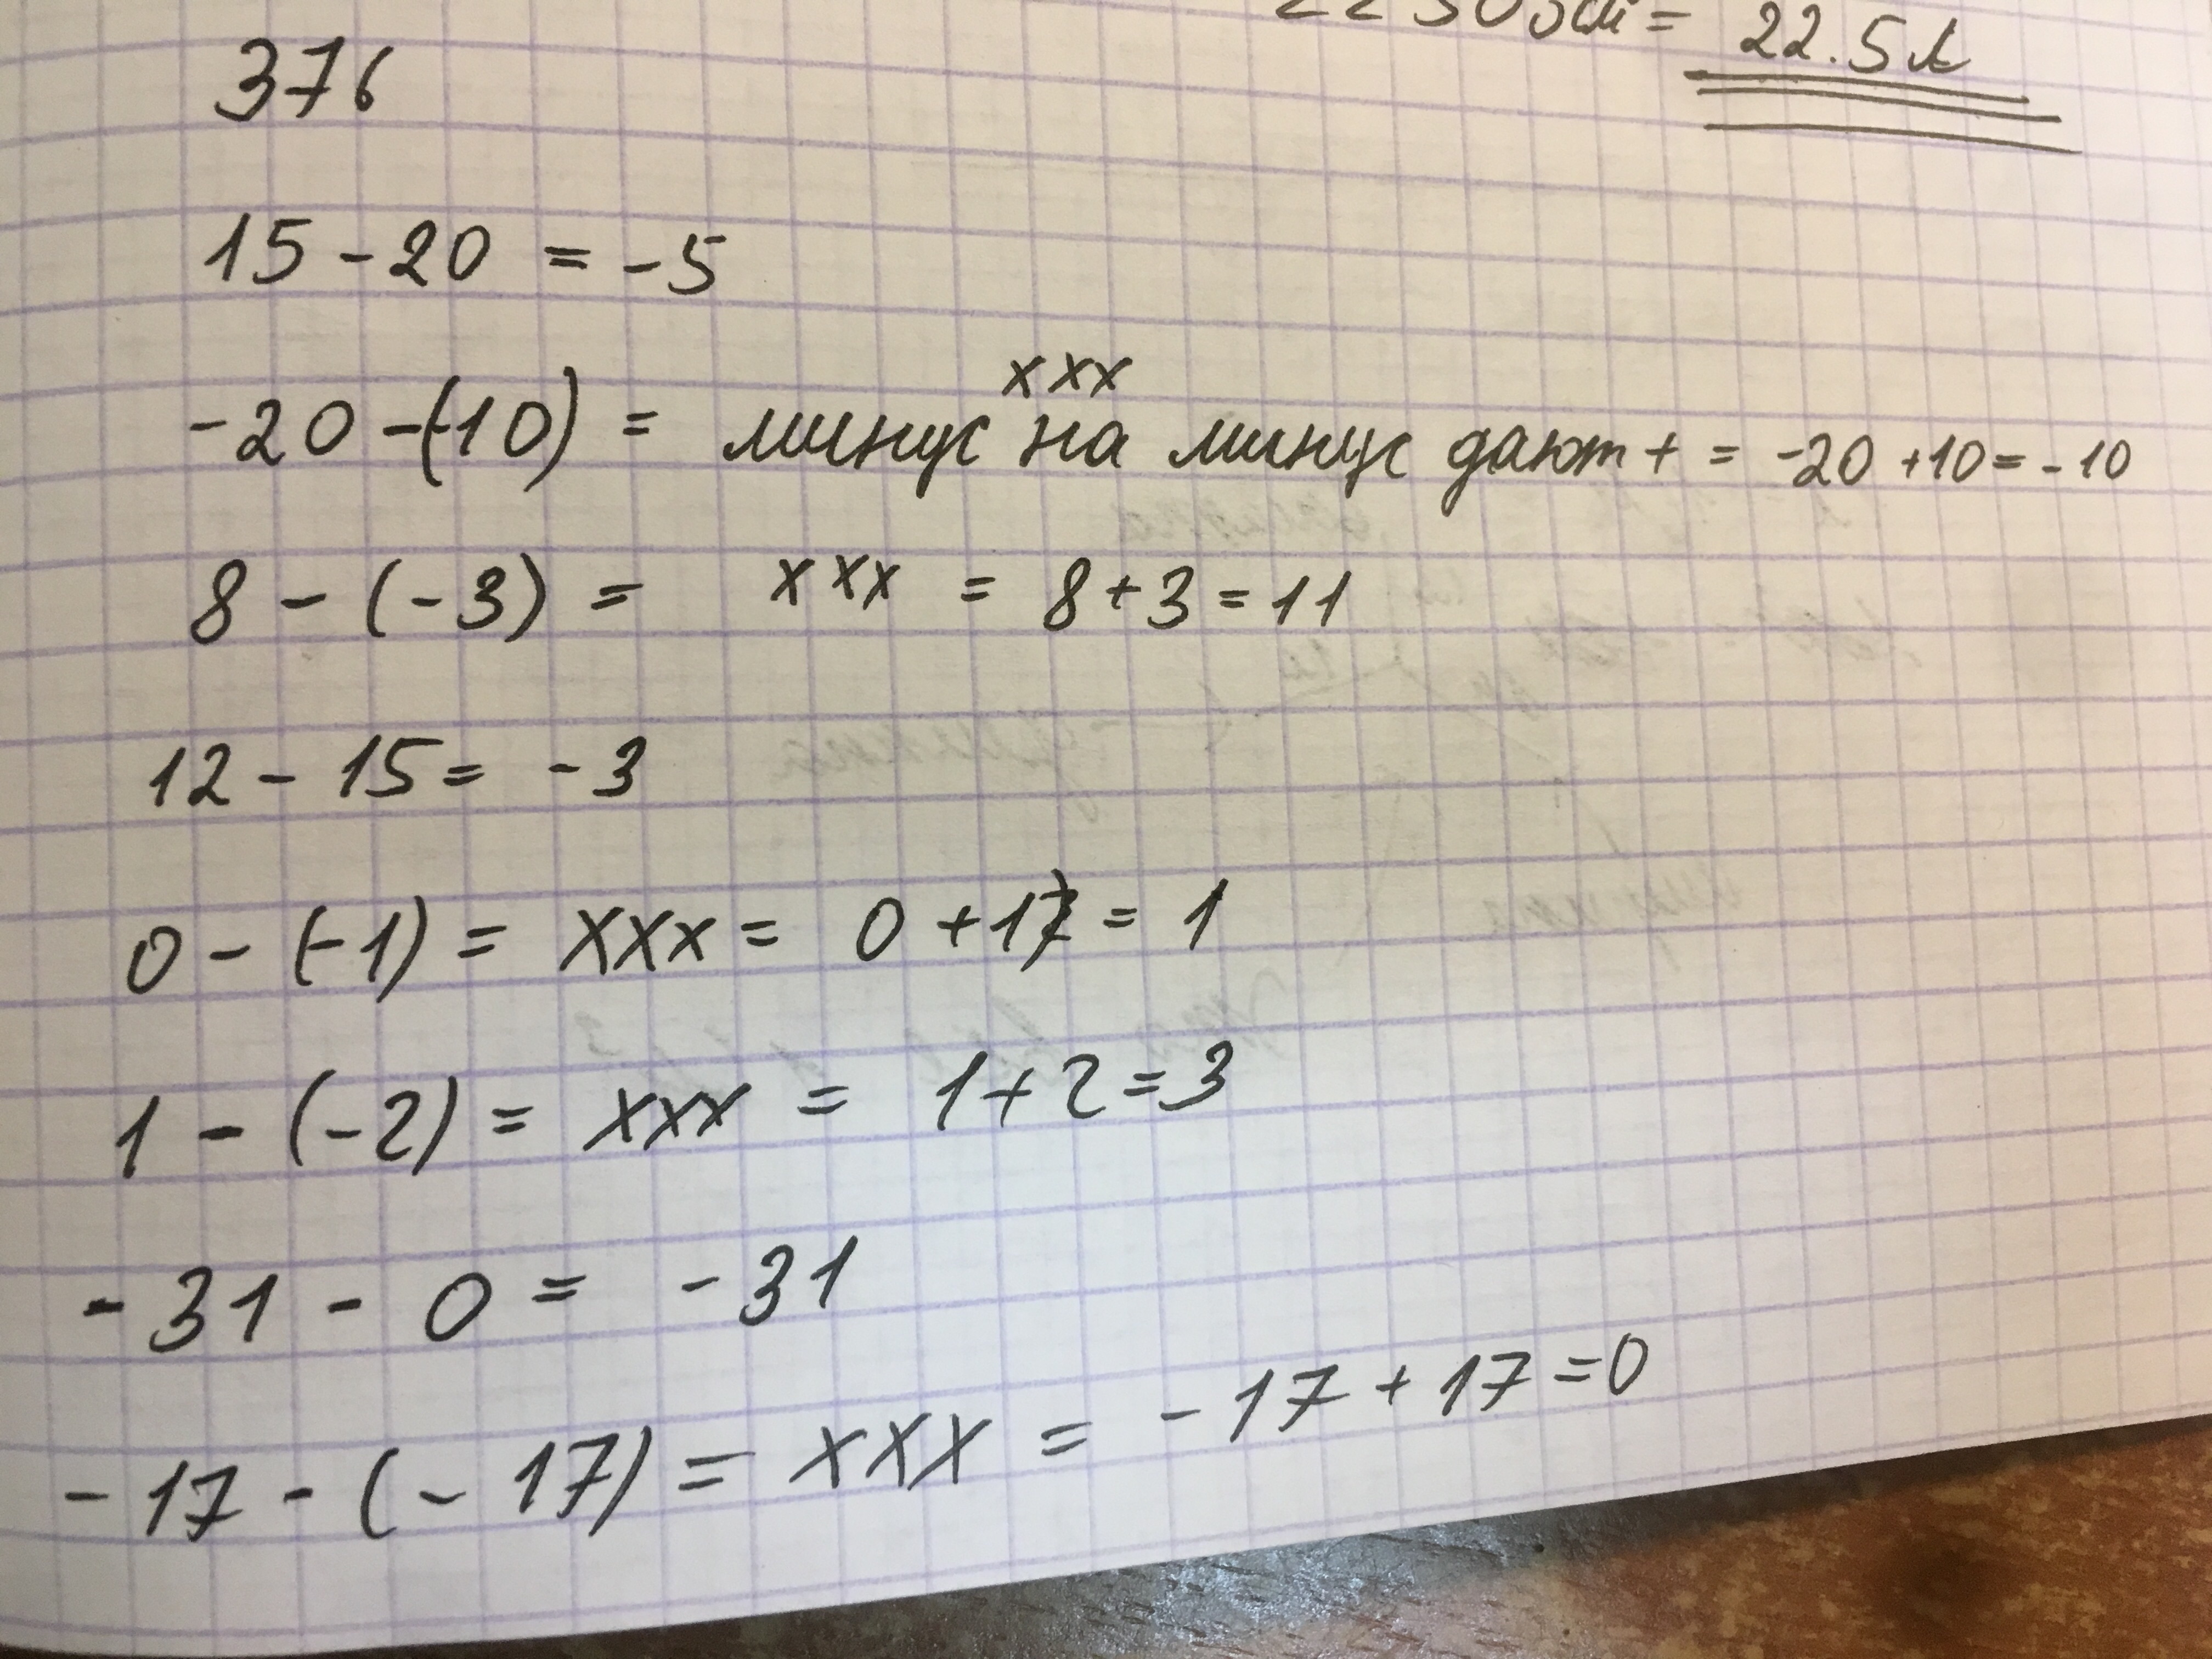 = 22.5 л
376
15 - 20 = -5
xxx
-20 -(-10) = минус на минус дают + = -20 +10 = -10
8 - (-3) = xxx = 8+3 = 11
12 - 15 = -3
0 - (-1) = xxx = 0 + 1 = 1
1 - (-2) = xxx = 1+2=3
-31 - 0 = -31
-17 - (-17) = xxx = -17 + 17 = 0